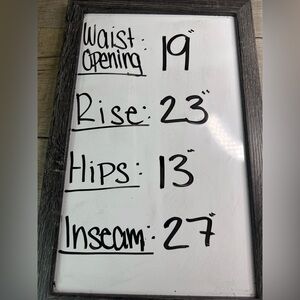 Waist:
Opening 19"
Rise: 23"
Hips: 13"
Inseam: 27"